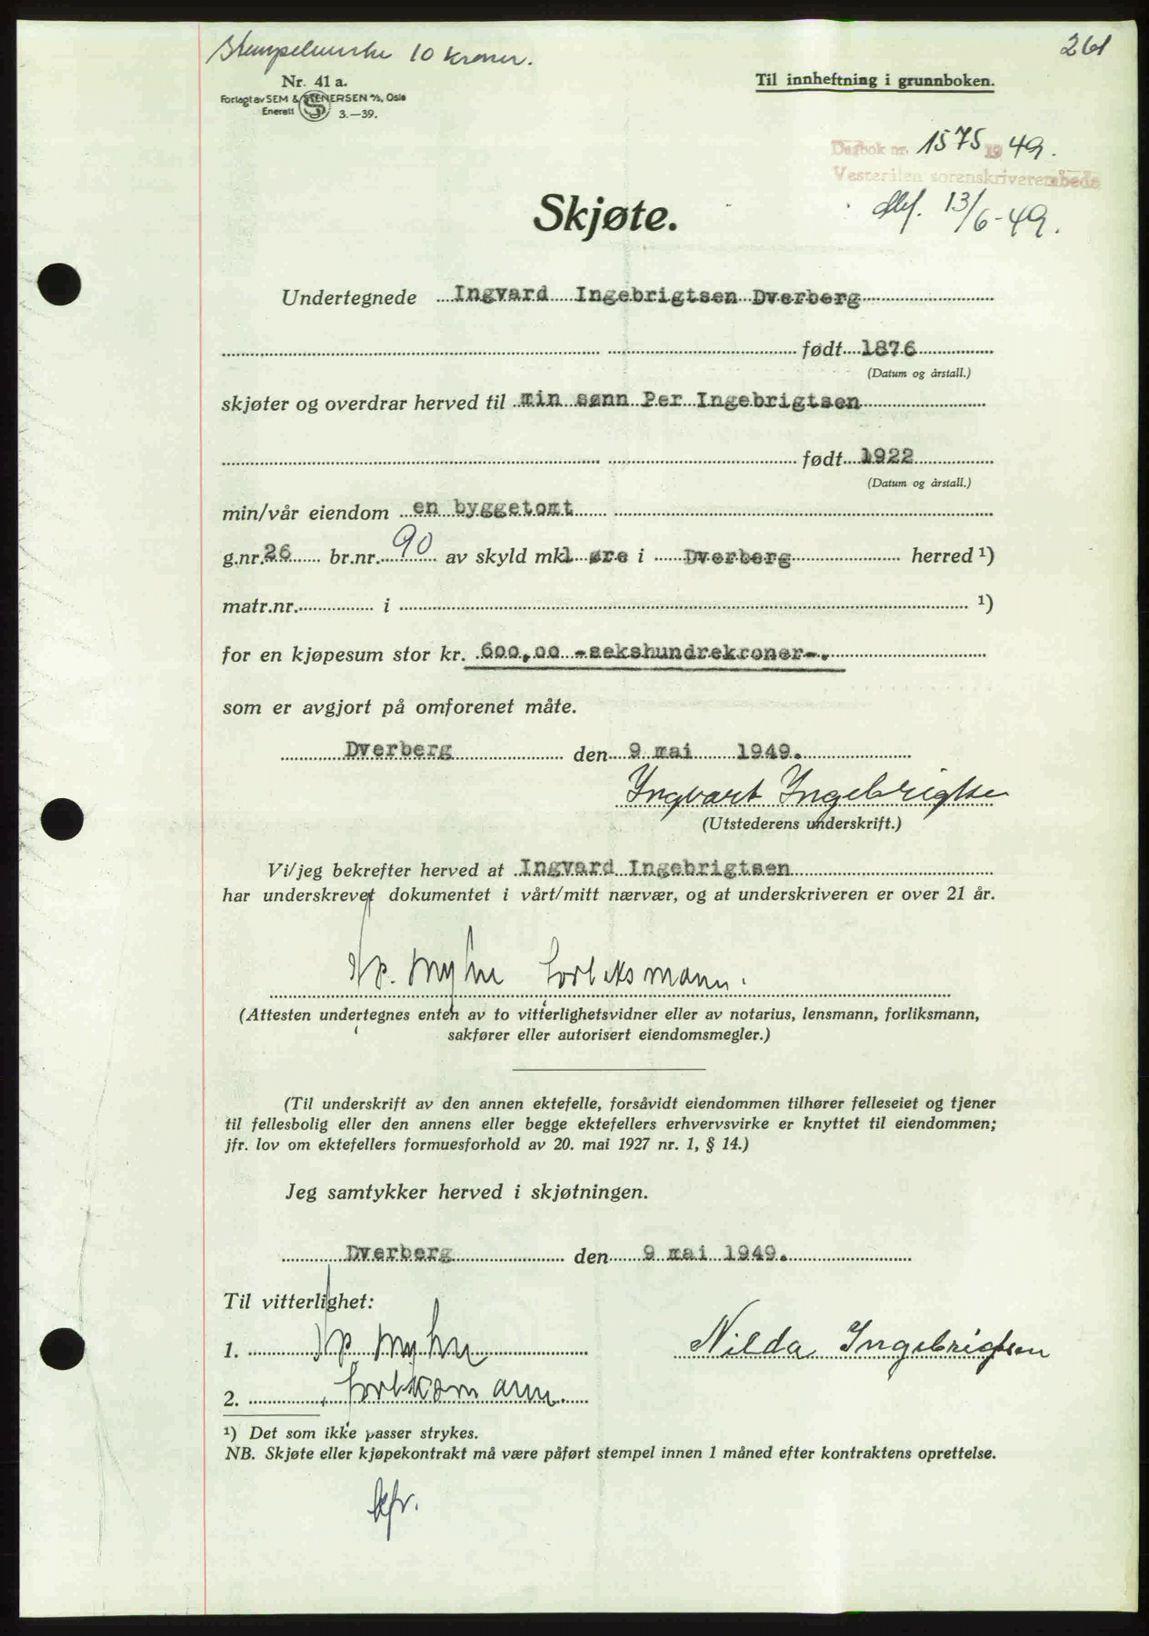 Stempelmerke 10 kroner.
261
Nr. 41 a.
Til innheftning i grunnboken.
Forlagt av SEM & STENERSEN A/S, Oslo
Enerett 3.—39.
Dagbok nr. 1575 1949.
Vesterålen sorenskriverembede
13/6-49.
Skjøte.
Undertegnede Ingvard Ingebrigtsen Dverberg
født 1876
(Datum og årstall.)
skjøter og overdrar herved til min sønn Per Ingebrigtsen
født 1922
(Datum og årstall.)
min/vår eiendom en byggetomt
g.nr. 26 br.nr. 90 av skyld mk1 øre i Dverberg herred ¹)
matr.nr. i ¹)
for en kjøpesum stor kr. 600,00 -sekshundrekroner-.
som er avgjort på omforenet måte.
Dverberg den 9 mai 1949.
Ingvart Ingebrigtse
(Utstederens underskrift.)
Vi/jeg bekrefter herved at Ingvard Ingebrigtsen
har underskrevet dokumentet i vårt/mitt nærvær, og at underskriveren er over 21 år.
Myhre forliksmann.
(Attesten undertegnes enten av to vitterlighetsvidner eller av notarius, lensmann, forliksmann,
sakfører eller autorisert eiendomsmegler.)
(Til underskrift av den annen ektefelle, forsåvidt eiendommen tilhører felleseiet og tjener
til fellesbolig eller den annens eller begge ektefellers erhvervsvirke er knyttet til eiendommen;
jfr. lov om ektefellers formuesforhold av 20. mai 1927 nr. 1, § 14.)
Jeg samtykker herved i skjøtningen.
Dverberg den 9 mai 1949.
Til vitterlighet:
1. Myhre
Nilda Ingebrigtsen
2. forliksmann.
¹) Det som ikke passer strykes.
NB. Skjøte eller kjøpekontrakt må være påført stempel innen 1 måned efter kontraktens oprettelse.